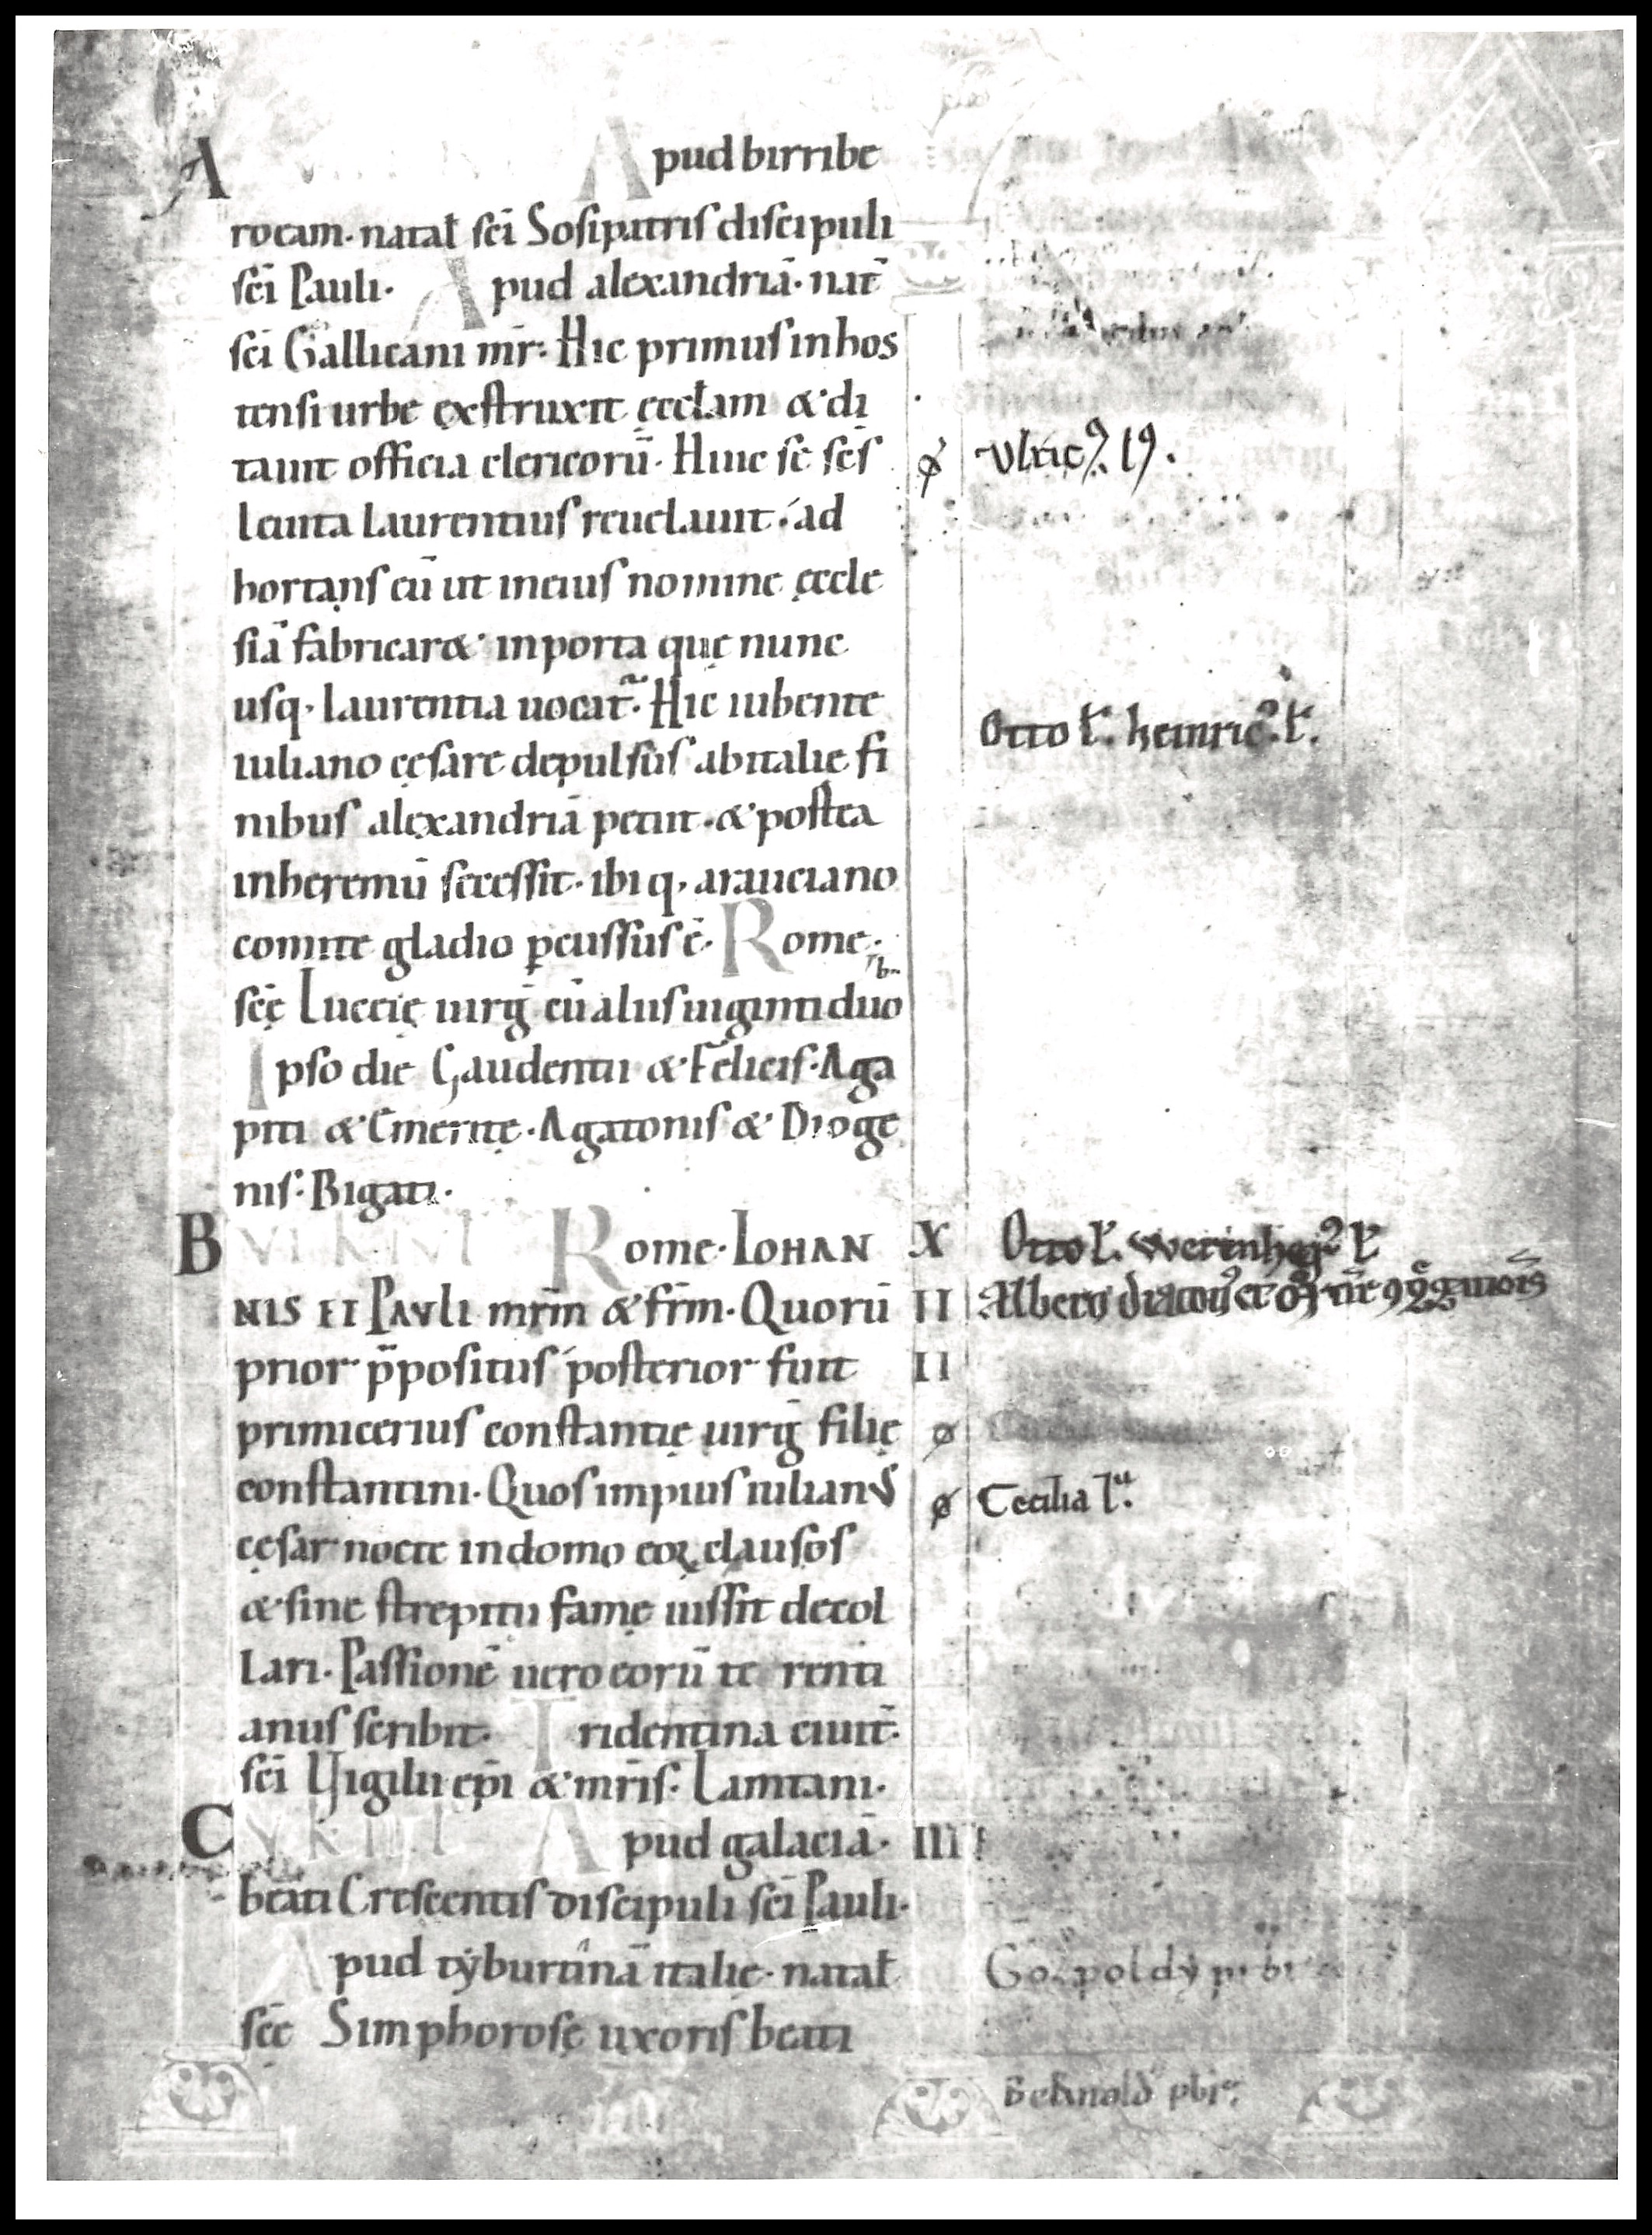 A A pud birribe
rocam· natal̄ sc̄i Sosipatris discipuli
sc̄i Pauli· A pud alexandriā· nat̄
sc̄i Gallicani mr̄· Hic primus in hos
tensi urbe ęxstruxit ęccl̄am &·di
tauit officia clericorū· Huic se sc̄s
leuita Laurentius reuelauit·́ ad
hortans eū ut in eius nomine ęccle
siā fabricar&· in porta quę nunc
usq· laurentia uocat̄· Hic iubente
iuliano cęsare depulsus ab italię fi
nibus alexandriā petiit·&·postea
in heremū secessit· ibiq· a rauciano
comite gladio ꝑcussus ē· Rome·
sc̄ę Luceię uirḡ cū aliis uiginti duob·
Ipso die Gaudentii &·Felicis·Aga
piti &·Emeritę·Agatonis &·Dioge
nis· Bigati·
B VI KL IVL Rome· IOHAN X Otto l̄. Werinher᷒ l̄
NIS ET PAVLI mr̄m &·fr̄m· Quorū II Albero diacon᷒
prior p̄positus ṕosterior fuit II
primicerius constantię uirḡ filię ø
constantini·Quos impius iulianus ø Cecilia lᵃ.
cęsar nocte in domo eoꝝ clausos
&·sine strepitu famę iussit decol
lari· Passionē uero eorū te renti
anus scribit· Tridentina ciuit̄·
sc̄i Uigilii epī &·mr̄is· Lamtani·
C V KL IVL A pud galaciā· III
beati Crescentis discipuli sc̄i Pauli·
A pud tẏburtinā italię·natal̄
sc̄e Simphorosę uxoris beati
ø Vlric᷒. l᷒.
Otto l̄. heinric᷒. l̄.
Berhnold pbr̄.